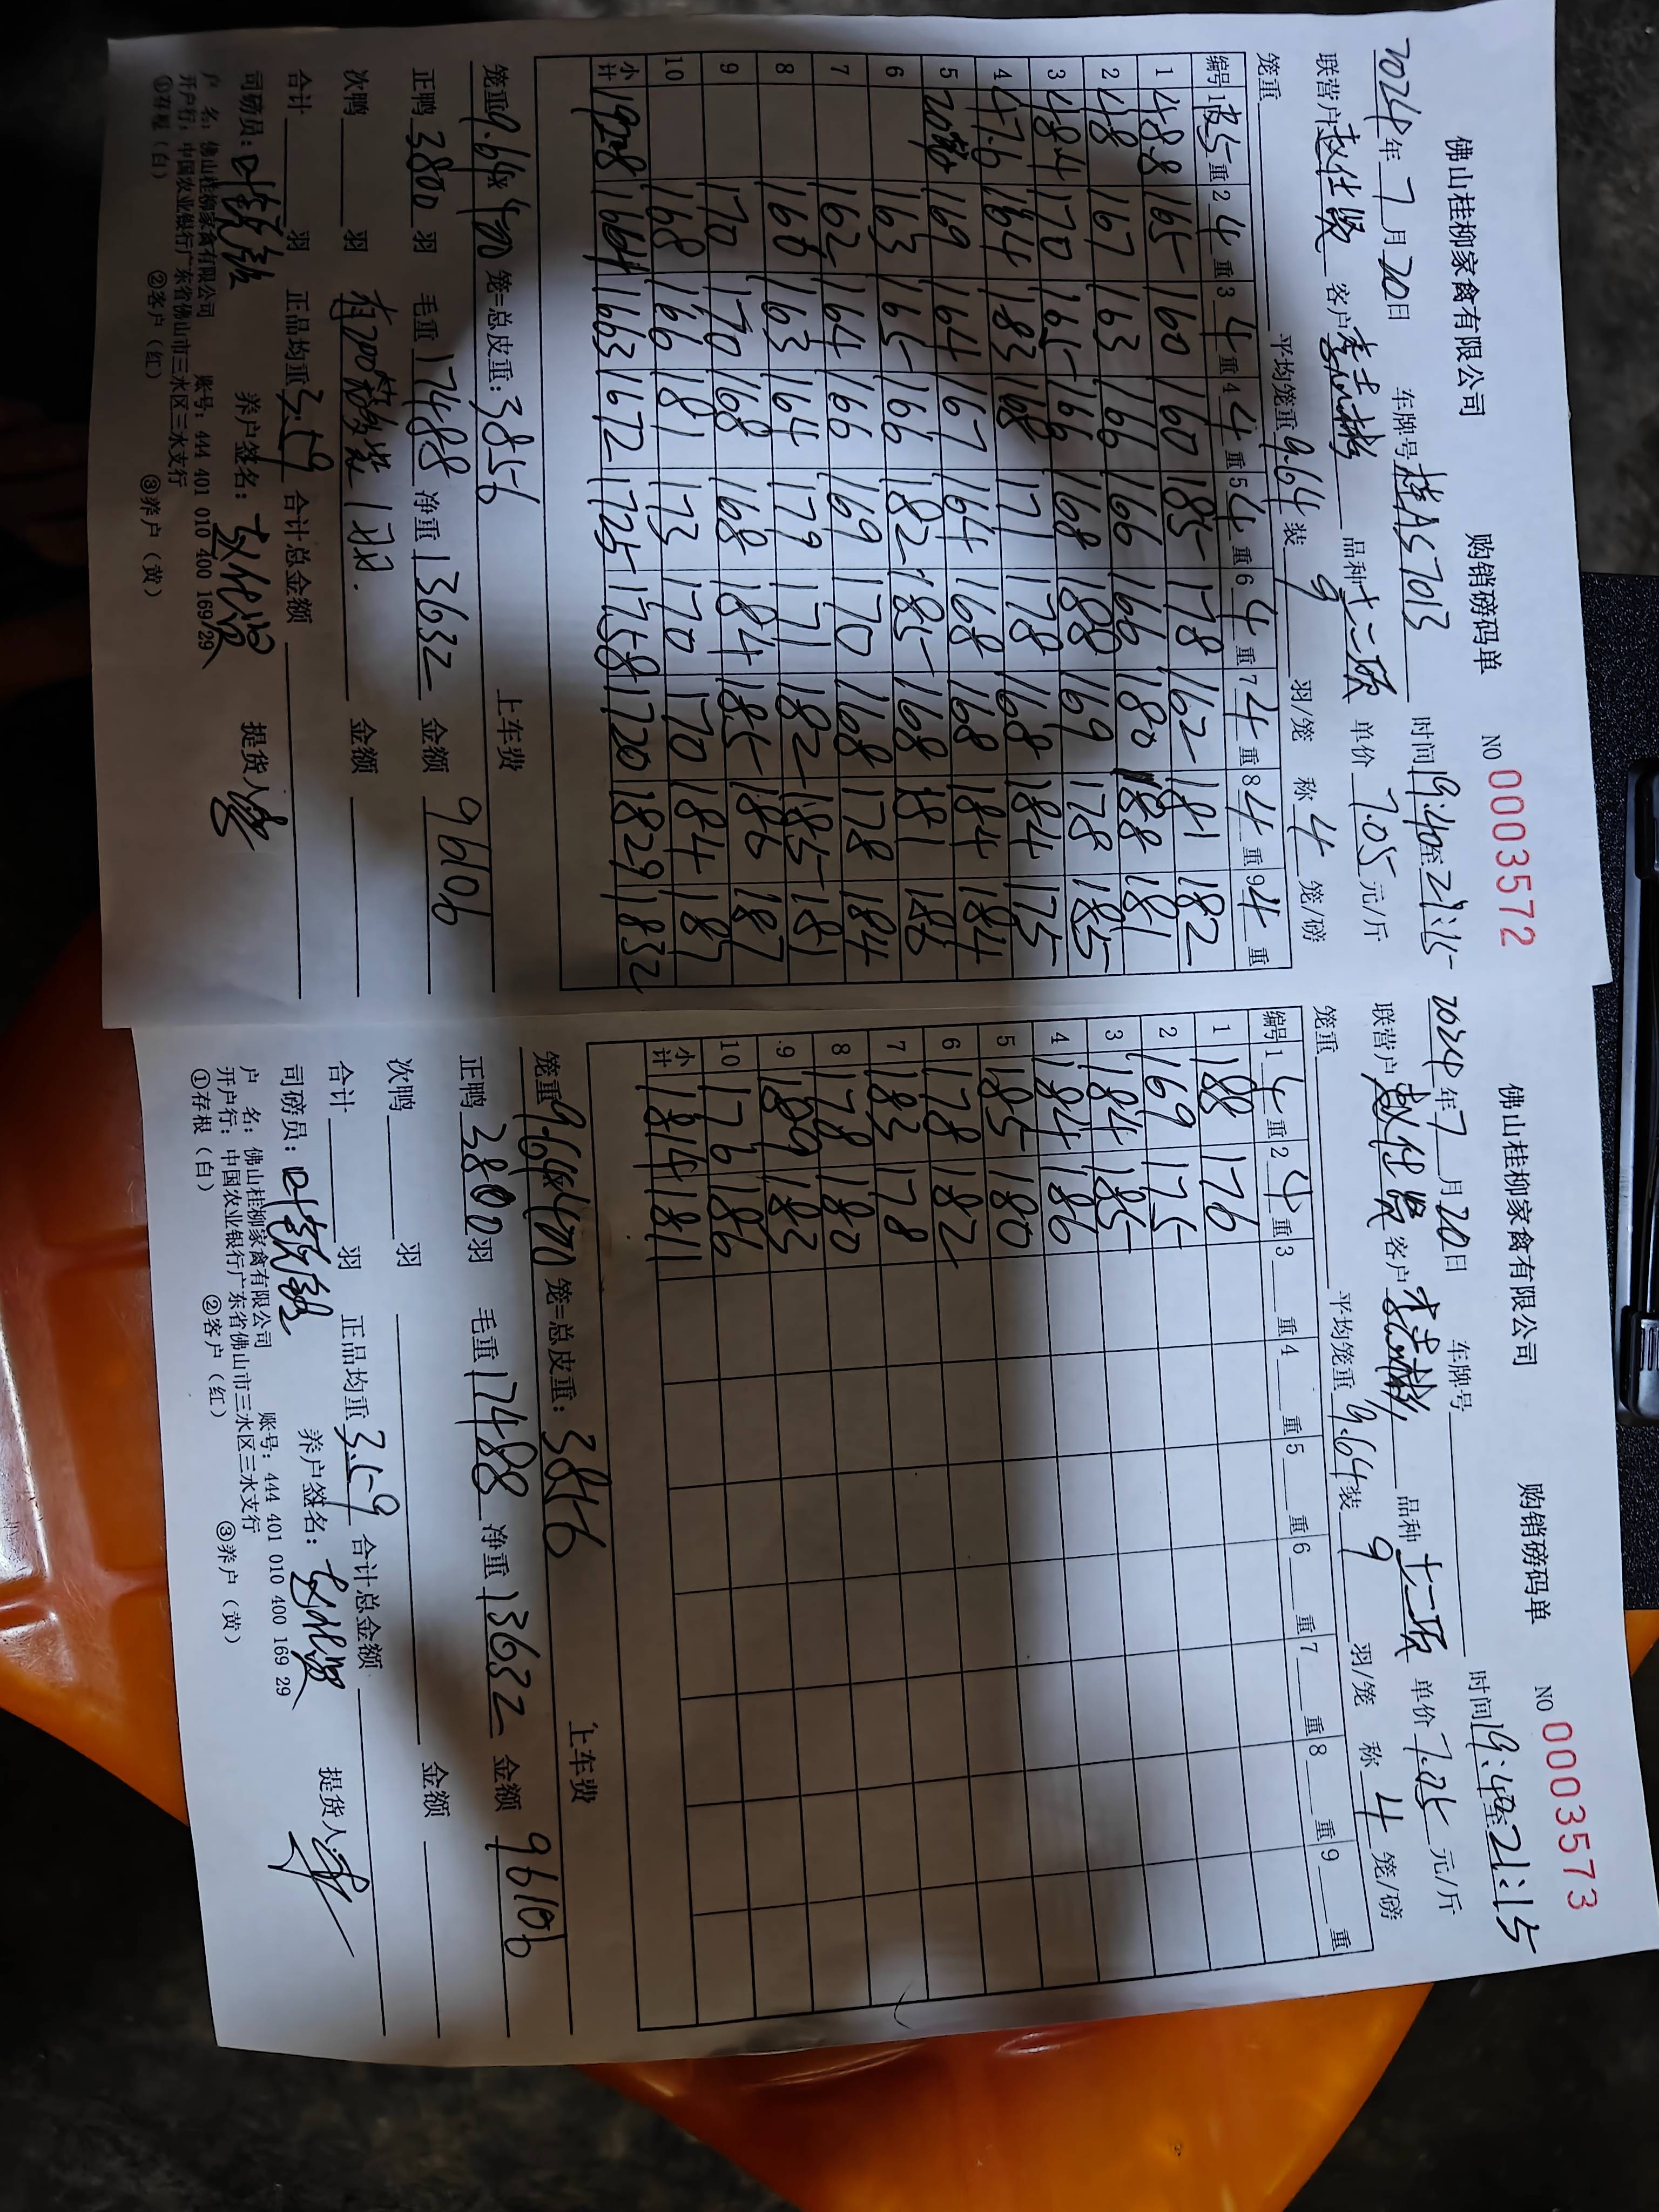 佛山桂柳家禽有限公司 购销磅码单 NO 0003572
2024年7月20日 车牌号桂A57013 时间19:40至21:15
联营户赵仕贤 客户 品种十二项 单价7.05元/斤
笼重 平均笼重9.64 装9羽/笼 称4笼/磅
编号 1皮5重 2 4重 3 4重 4 4重 5 4重 6 4重 7 4重 8 4重 9 4重
1 48.8 165 160 160 185 178 162 181 182
2 48 167 163 166 166 166 180 188 181
3 48.4 170 165 166 168 188 169 178 185
4 47.6 164 183 168 171 178 168 184 175
5 169 164 167 164 168 168 184 184
6 163 165 166 182 185 168 181 186
7 162 164 166 169 170 168 178 184
8 166 163 164 179 171 182 185 181
9 170 170 168 168 184 185 186 187
10 168 166 181 173 170 170 184 187
小计 192.8 1664 1663 1672 1725 1758 1720 1829 1832
笼重9.64×400笼=总皮重:3856 上车费
正鸭3800羽 毛重17488 净重13632 金额96106
次鸭 羽 金额
合计 羽 正品均重3.59 合计总金额
司磅员: 养户签名:赵仕贤 提货人
户 名:佛山桂柳家禽有限公司 账号:444 401 010 400 169 29
开户行:中国农业银行广东省佛山市三水区三水支行
①存根(白) ②客户(红) ③养户(黄)
佛山桂柳家禽有限公司 购销磅码单 NO 0003573
2024年7月20日 车牌号 时间19:40至21:15
联营户赵仕贤 客户 品种十二项 单价7.05元/斤
笼重 平均笼重9.64 装9羽/笼 称4笼/磅
编号 1 4重 2 4重 3 重 4 重 5 重 6 重 7 重 8 重 9 重
1 188 176
2 169 175
3 184 185
4 184 186
5 185 180
6 178 182
7 183 178
8 178 180
9 189 183
10 176 186
小计 1814 1811
笼重9.64×400笼=总皮重:3856 上车费
正鸭3800羽 毛重17488 净重13632 金额96106
次鸭 羽 金额
合计 羽 正品均重3.59 合计总金额
司磅员: 养户签名:赵仕贤 提货人
户 名:佛山桂柳家禽有限公司 账号:444 401 010 400 169 29
开户行:中国农业银行广东省佛山市三水区三水支行
①存根(白) ②客户(红) ③养户(黄)